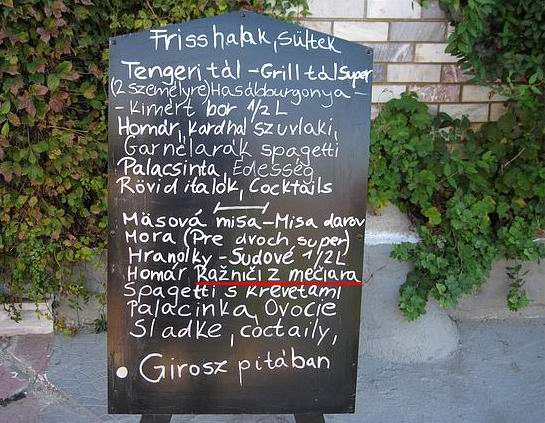 Friss halak, sültek
Tengeri tál - Grill tál Super
(2 személyre) Hasábburgonya -
- Kimért bor 1/2 L
Homár, kardhal szuvlaki,
Garnélarák spagetti
Palacsinta, Édesség
Rövid italok, Cocktails
Mäsová misa - Misa darov
Mora (Pre dvoch super)
Hranolky - Sudové 1/2 L
Homár Ražniči z mečiara
Spagetti s krevetami
Palacinka, Ovocie
Sladke, coctaily,
• Girosz pitában